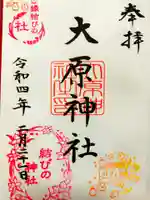 奉拝
大原神社
令和四年二月二十一日
縁結びの社
結びの神社